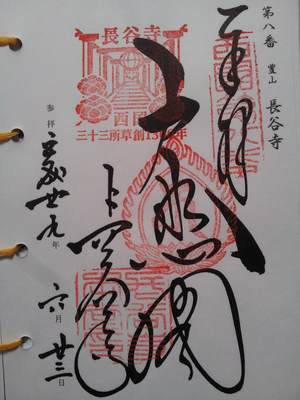 第八番 豊山 長谷寺
奉拝
大悲閣
長谷寺
長谷寺
西国
三十三所草創1300年
参拝 平成廿九年 六月 廿三日